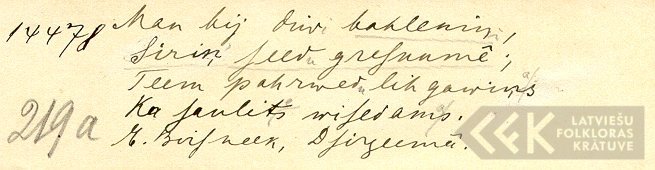 14478 Man bij diwi bahlenini,
Sirin seedu gresnumê;,
Teem pahrwedu lihgawinas
Ka saulite wisedama.
E. Birsneek, Dsirzeemâ.
219a
LATVIEŠU
FOLKLORAS
KRĀTUVE